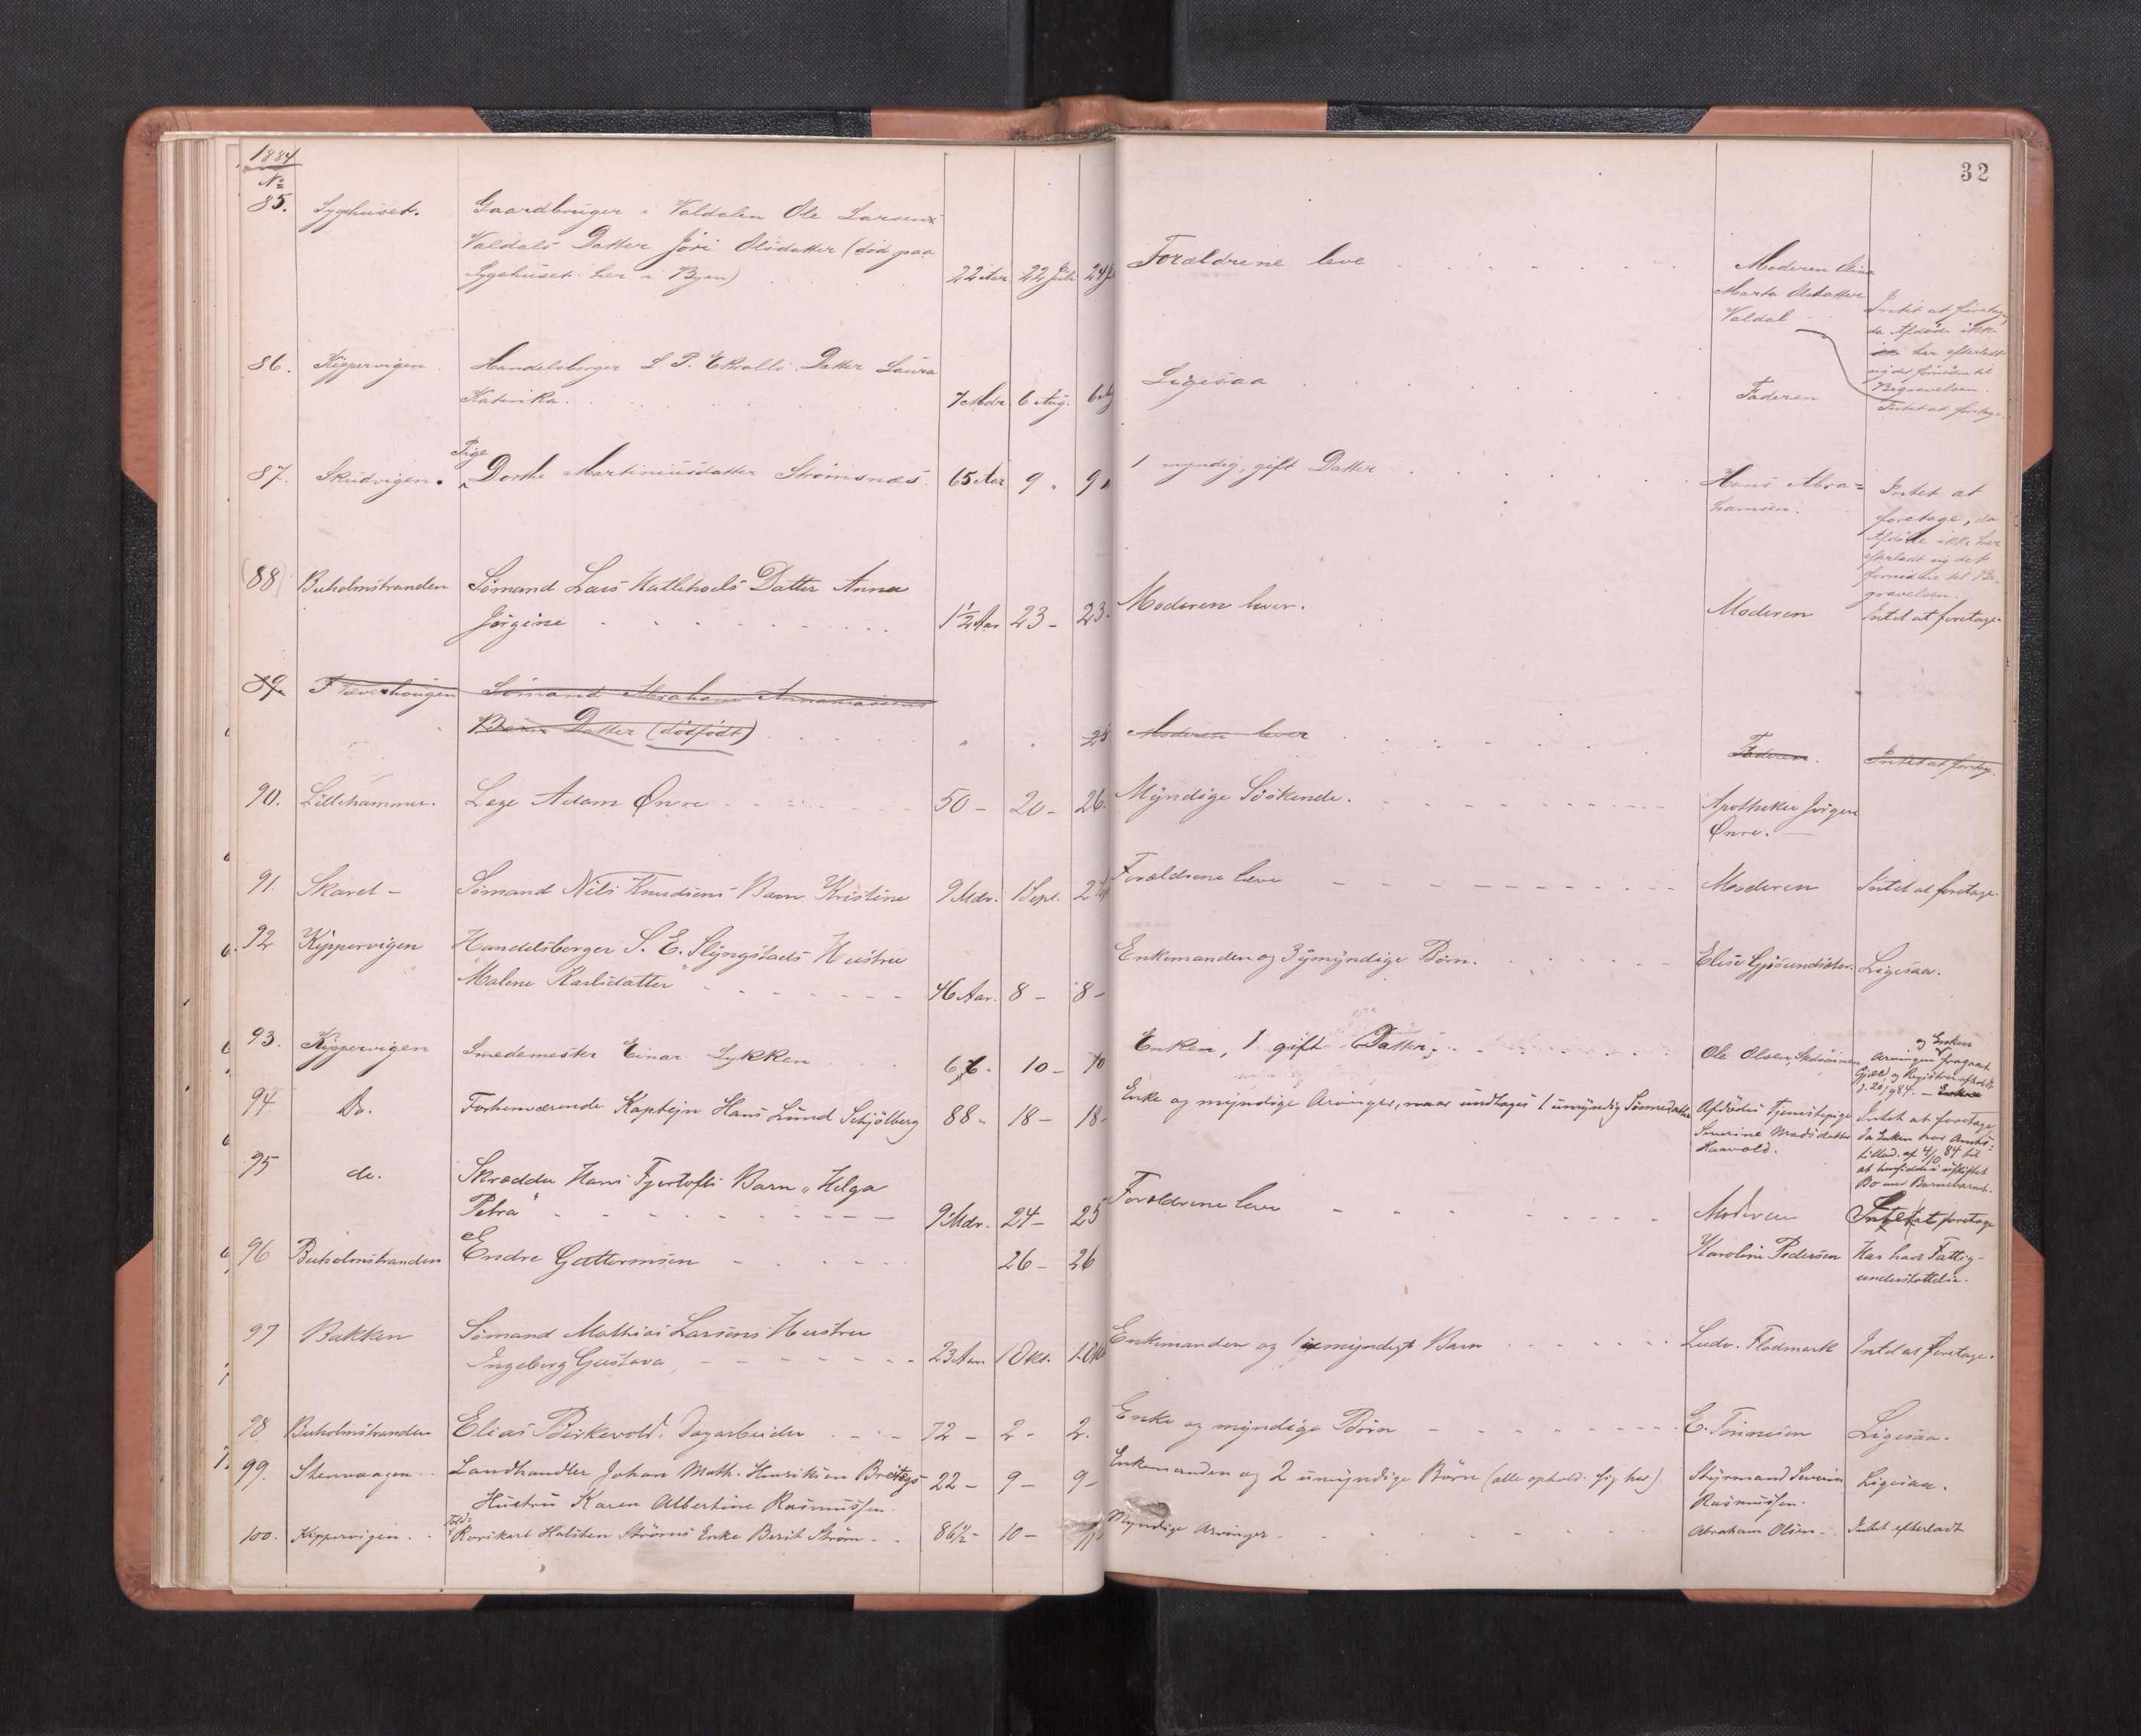 1884
32
No
85. Sygehuset. Gaardbruger i Valdalen Ole Larsens
Valdals Datter Jøri Olsdatter (død paa
Sygehuset her i Byen) 22 Aar 22 Juli 24 Forældrene leve
Moderen
Marta Olsdatter
Valdal
Intet at foretage,
da Afdøde ikke
har efterladt
sig det fornødne til
Begravelsen.
86. Kippervigen Handelsborger L P. Ekrolls Datter Laura
Katinka. 7 Mdr. 6 Aug. 6 Ligesaa Faderen Intet at foretage.
87. Skudvigen. Pige Dorthe Martiniusdatter Strømsnæs. 65 Aar 9 9 1 myndig, gift Datter Hans Abra=
hamsen.
Intet at
foretage, da
Afdøde ikke har
efterladt sig det
fornødne til Be-
gravelsen.
88 Buholmstranden Sømand Lars Hatlehols Datter Anna
Jørgine 1½ Aar 23 - 23. Moderen lever. Moderen Intet at foretage
89 Sømand Abraham
Datter (dødfødt) Moderen lever Faderen. Intet at foretage.
90. Lillehammer. Læge Adam Øwre 50 - 20 - 26. Myndige Søskende. Apotheker Jørgen
Øwre.
91. Skaret - Sømand Nils Knudsens Barn Kristine 9 Mdr. 1 Sept. 2 Forældrene leve Moderen Intet at foretage.
92 Kippervigen Handelsborger S. E. Slyngstads Hustru
"Malene Karlsdatter" 46 Aar. 8 - 8 - Enkemanden og 3 umyndige Børn. Elise Ligesaa.
93. Kippervigen Smedemester Einar Lykken 66. 10 - 10 Enken, 1 gift Datter, Ole Olsen,
og Enken
Arvingen fragaaet
Gjæld og
94 Do. Forhenværende Kaptejn Hans Lund Schjølberg 88 - 18 - 18 - Enke og myndige Arvinger, naar undtages 1 umyndig Sønnedatter Afdødes Tjenestepige
Severine Madsdatter
Haavold.
Intet at foretage,
da Enken har Amts=
tillad. af 4/10 84 til
at hensidde i uskiftet
Bo med Barnebarnet.
95 do. Skrædder Hans Fjertofts Barn "Helga
Petra" 9 Mdr. 24 - 25 Forældrene leve Moderen Intet at foretage
96 Buholmstranden Endre Guttormsen 26 - 26 Karoline Pedersen Har havt Fattig-
understøttelse.
97 Bakken Sømand Mathias Larsens Hustru
Ingeborg Gustava 23 Aar. 1 Okt. 1. Okt Enkemanden og 1 umyndigt Barn Ludv. Flodmark Intet at foretage.
98 Buholmstranden Elias Birkevold. Dagarbeider 72 - 2 - 2. Enke og myndige Børn E. Tønnesen Ligesaa.
99. Stenvaagen Landhandler Johan Math. Henriksen Breitegs
Hustru Karen Albertine Rasmussen. 22 - 9 - 9 - Enkemanden og 2 umyndige Børn (alle ophold. sig her) Styrmand Severin
Rasmussen.
Ligesaa.
100. Kippervigen. Told=
Rorskarl Halsten Strøms Enke Berit Strøm 86½ - 10 - Myndige Arvinger. Abraham Olsen Intet efterladt